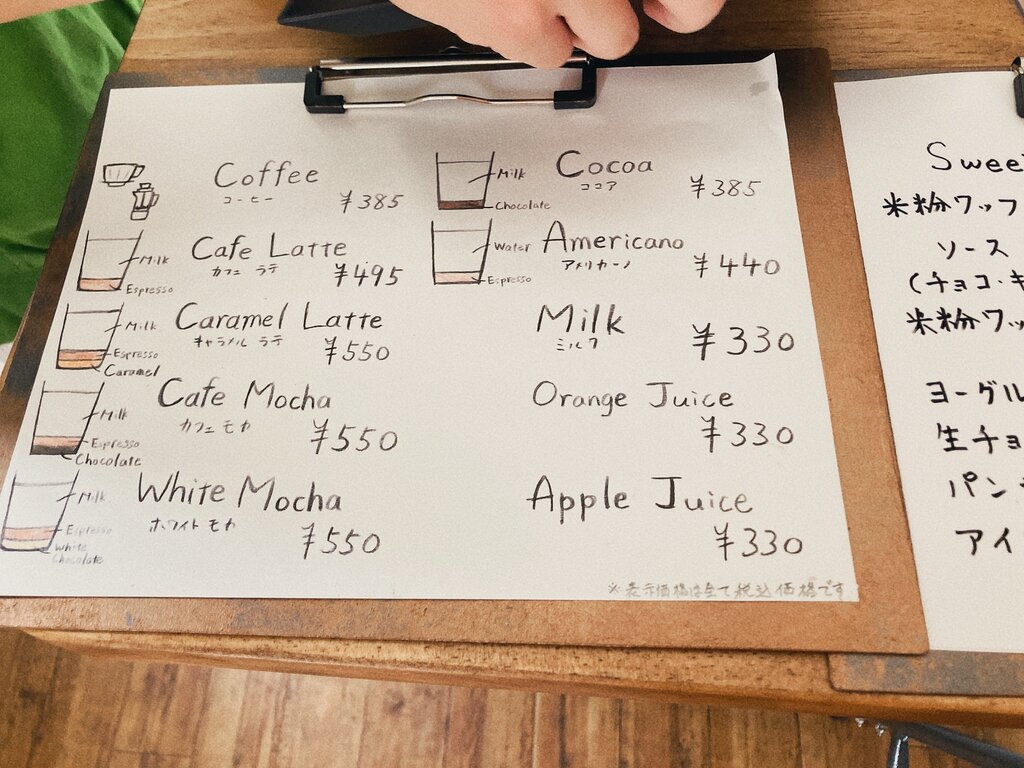 Coffee
コーヒー
¥385
Milk
Cafe Latte
カフェ ラテ
¥495
Espresso
Milk
Caramel Latte
キャラメル ラテ
¥550
Espresso
Caramel
Milk
Cafe Mocha
カフェ モカ
¥550
Espresso
Chocolate
Milk
White Mocha
ホワイト モカ
¥550
Espresso
White
Chocolate
Milk
Cocoa
ココア
¥385
Chocolate
Water
Americano
アメリカーノ
¥440
Espresso
Milk
ミルク
¥330
Orange Juice
¥330
Apple Juice
¥330
※表示価格は全て税込価格です
Swee
米粉ワッフ
ソース
(チョコ・キ
米粉ワッ
ヨーグル
生チョ
パン
アイ